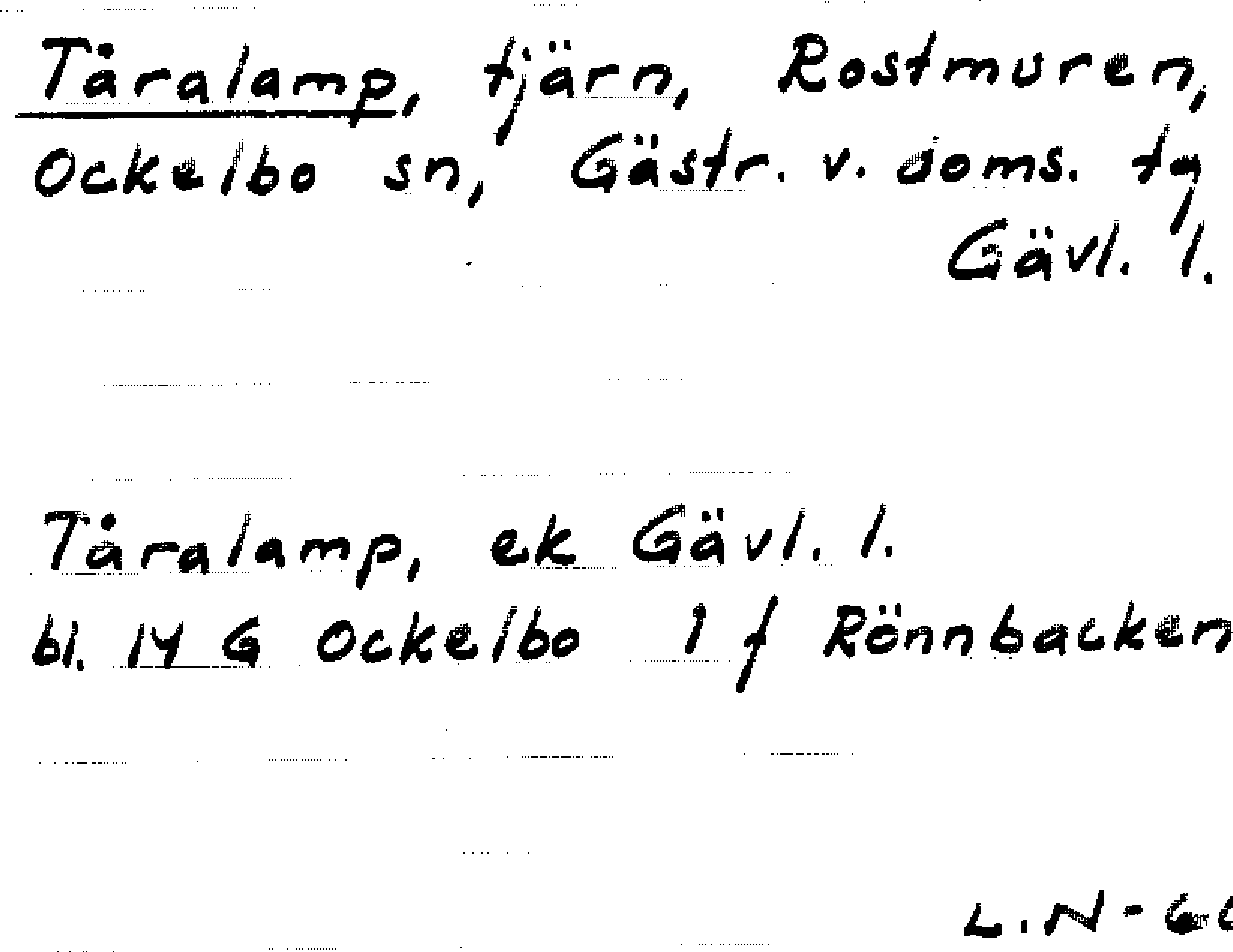 Tåralamp, tjärn, Rostmuren,
Ockelbo sn, Gästr. v. doms. tg
Gävl. l.
Tåralamp, ek Gävl. l.
bl. 14 G Ockelbo 1 f Rönnbacken